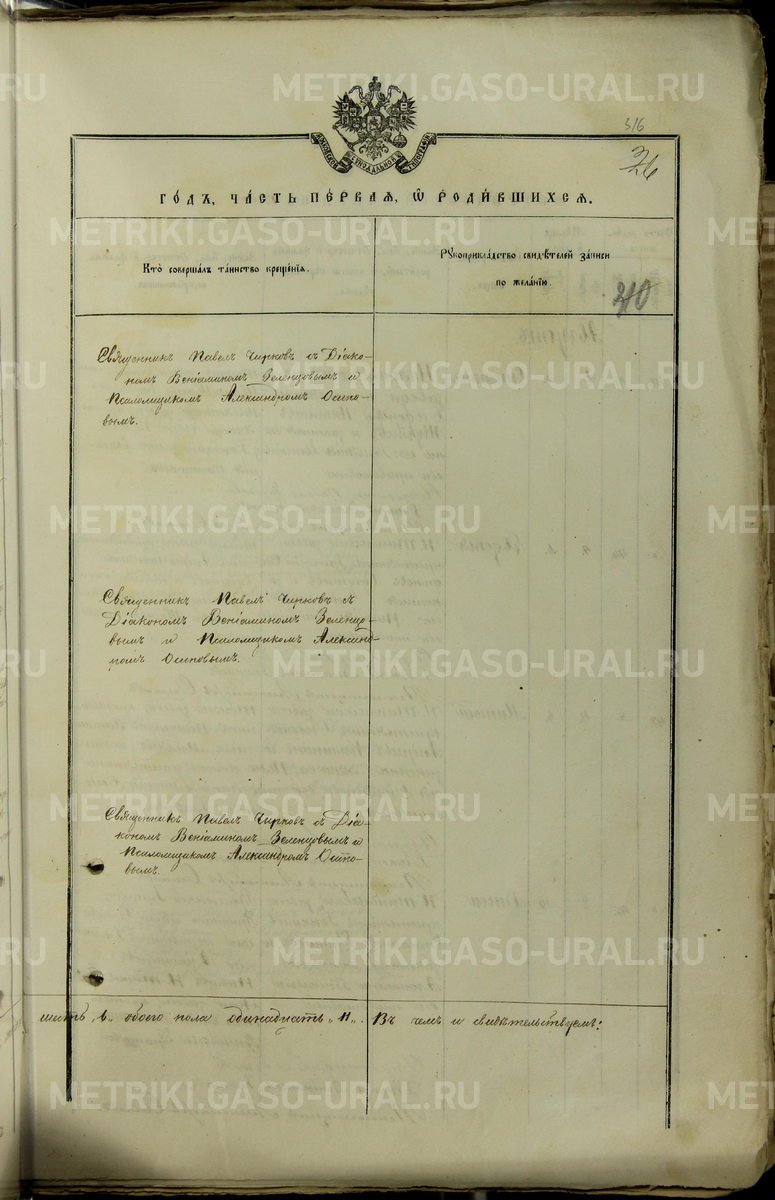 METRIKI.GASO-URAL.RU
316
МОСКОВСКОЙ СѴНОДАЛЬНОЙ ТИПОГРАФІИ
ГО́ДЪ, ЧА́СТЬ ПЕ́РВАЯ, Ѡ РОДИ́ВШИХСЯ.
Кто̀ совершалъ та́инство креще́нїѧ.
Рꙋкоприкла́дство свидѣ́телей за́писи
по жела́нїю.
310
Священникъ Павелъ Чирковъ съ Діако-
номъ Веніаминомъ Зеленцовымъ и
Псаломщикомъ Александромъ Осипо-
вымъ.
Священникъ Павелъ Чирковъ съ
Діакономъ Веніаминомъ Зеленцо-
вымъ и Псаломщикомъ Александ-
ромъ Осиповымъ.
Священникъ Павелъ Чирковъ съ Діа-
кономъ Веніаминомъ Зеленцовымъ и
Псаломщикомъ Александромъ Осипо-
вымъ.
шесть „6„ обоего пола одинадцать „11„. Въ чемъ и свидѣтельствуемъ: